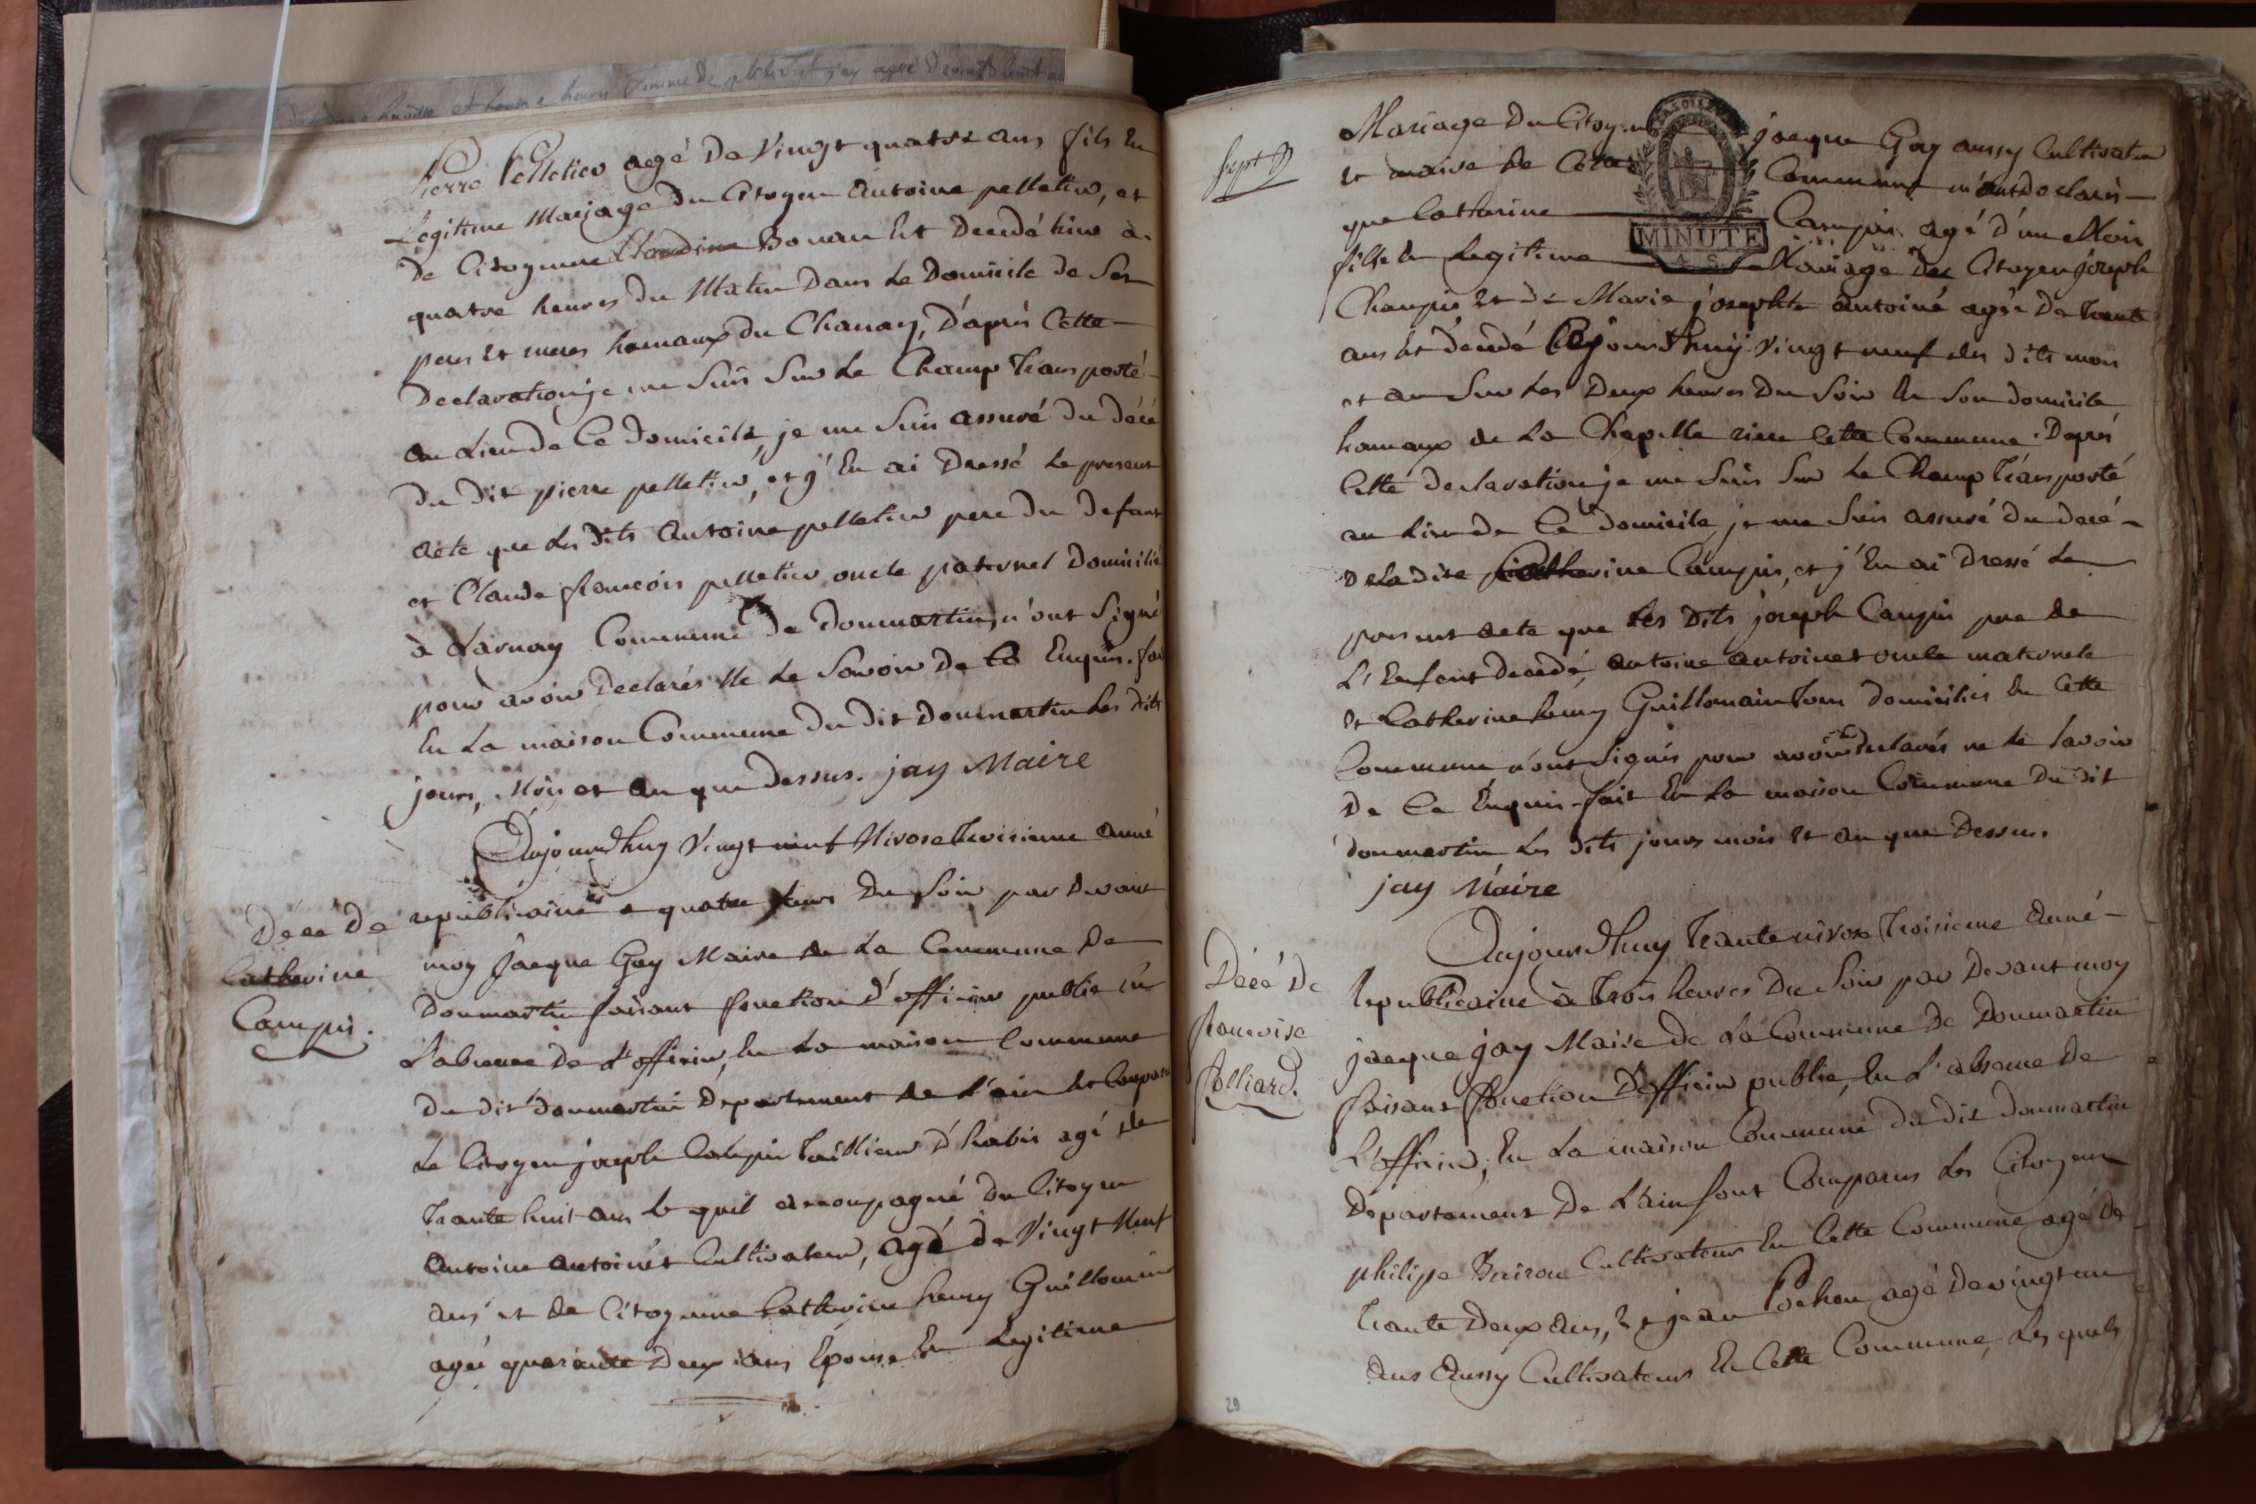 Pierre Pelletier agé De Vingt quatre ans fils En
Legitime Mariage Du Citoyen Antoine pelletier, et
De Citoyenne Claudine Bonan Est Decedé hier à
quatre heures Du Matin Dans Le Domicile De Ses
peres et meres hamaux du Chanay, D'après Cette
Declaration je me Suis Sur Le Champ Transporté
au Lieu De Ce Domicile, je me Suis assuré du décé
Du Dit pierre pelletier, et j'En ai Dressé Le present
acte que Les dits Antoine pelletier pere Du Defunt
et Claude françois pelletier oncle paternel Domicilié
à Larnay Commune De Dommartin, n'ont Signé
pour avoir Declarés Ne Le Savoir De Ce Enquis. fait
En La maison Commune Du Dit Dommartin Les dits
jours, Mois et An que Dessus. jay Maire
Aujourdhuy Vingt neuf Nivose Troisieme année
republicaine a quatre heures Du Soir par Devant
moy Jacque Gay Maire de La Commune De
Dommartin faisant fonction d'officier public En
L'absence De L'officier, En La maison Commune
Du dit Dommartin Departement de L'ain Est Comparu
Le Citoyen joseph Campin Tailleur D'habit agé de
Trante huit ans Le quel accompagné Du Citoyen
Antoine Antoinet Cultivateur, agé De Vingt Neuf
ans et de Citoyenne Catherine henry Guillomain
agée quarante Deux ans Epouse En Legitime
Décé De
Catherine
Campin.
Sept 9
Mariage Du Citoyen jacque Gay aussy Cultivateur
et maire de Cette Commune m'ont Declarés
que Catherine Campin agé d'un Mois
fille En Legitime Mariage Des Citoyen joseph
Campin et De Marie josephte Antoine agée De Trante
ans Est Decedé Cejourdhuy Vingt neuf des dits mois
et an Sur Les Deux heures Du Soir En Son domicile
hamaux de La Chapelle riere Cette Commune. D'après
Cette declaration je me Suis Sur Le Champ Transporté
au Lieu De Ce domicile, je me Suis assuré Du Decé
De La dite Catherine Campin, et j'En ai Dressé Le
present acte que Les Dits joseph Campin pere de
L'Enfent Decedé, Antoine Antoinet oncle maternele
et Catherine henry Guillomain Tous domiciliés En Cette
Commune n'ont Signés pour avoir Declarés ne Le Savoir
De Ce Enquis. fait En La maison Commune Du dit
Dommartin Les dits jours mois et an que Dessus.
jay Maire
MINUTE
Aujourdhuy Trante nivose Troisieme Anné
republicaine à Trois heures Du Soir par Devant moy
jacque jay Maire De La Commune De Dommartin
faisant fonction D'officier public, En L'absence De
L'officier, En La maison Commune Du dit Dommartin
Departement De L'ain Sont Comparus Les Citoyens
philipe Cultivateur En Cette Commune agé De
Trante Deux Ans, et jean Pochon agé De vingt un
Ans Aussy Cultivateurs En Cette Commune, Les quels
Décé De
francoise
Solliard.
29